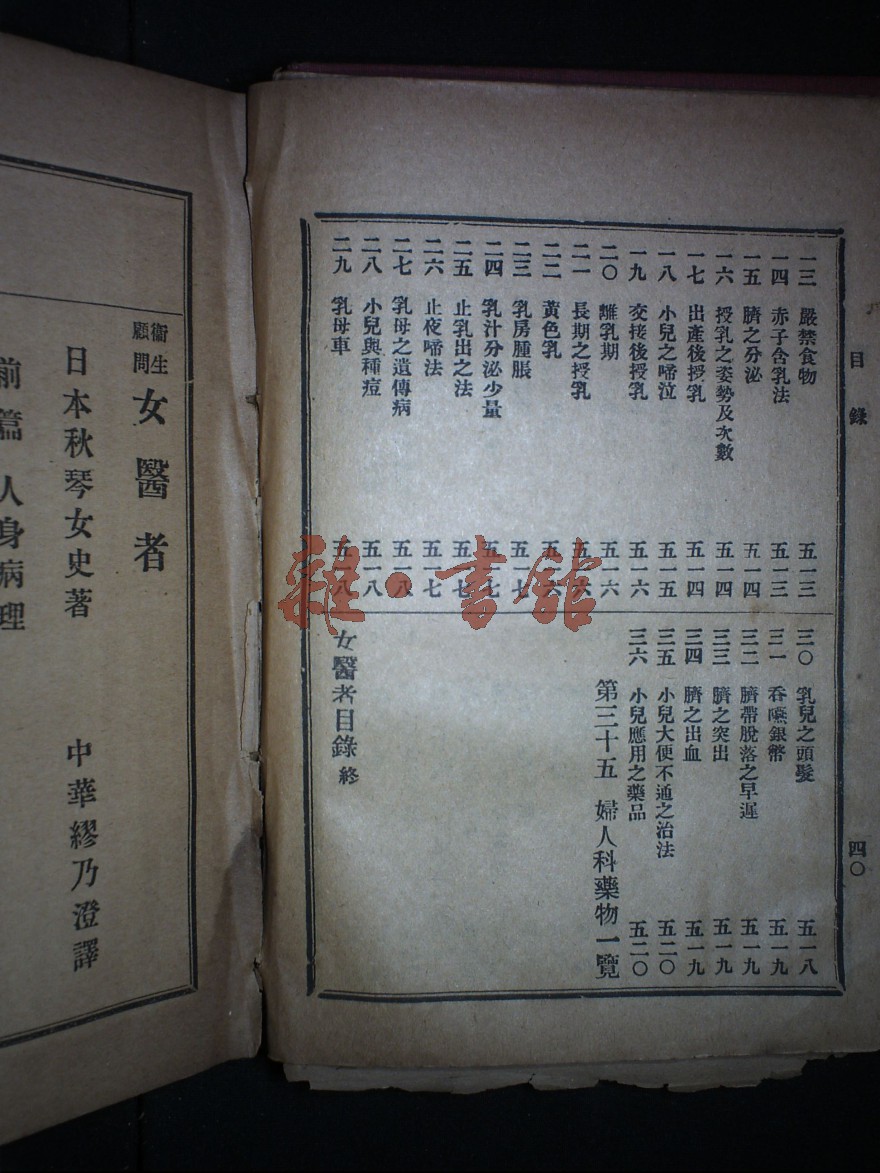 目錄
四〇
一三 嚴禁食物 五一三
一四 赤子含乳法 五一三
一五 臍之分泌 五一四
一六 授乳之姿勢及次數 五一四
一七 出產後授乳 五一四
一八 小兒之啼泣 五一五
一九 交接後授乳 五一六
二〇 離乳期 五一六
二一 長期之授乳 五一六
二二 黃色乳 五一六
二三 乳房腫脹 五一七
二四 乳汁分泌少量 五一七
二五 止乳出之法 五一七
二六 止夜啼法 五一七
二七 乳母之遺傳病 五一八
二八 小兒與種痘 五一八
二九 乳母車 五一八
三〇 乳兒之頭髮 五一八
三一 吞嚥銀幣 五一九
三二 臍帶脫落之早遲 五一九
三三 臍之突出 五一九
三四 臍之出血 五一九
三五 小兒大便不通之治法 五二〇
三六 小兒應用之藥品 五二〇
第三十五 婦人科藥物一覽
女醫者目錄 終
衞生顧問 女醫者
日本秋琴女史著 中華繆乃澄譯
前篇 人身病理
雜·書館